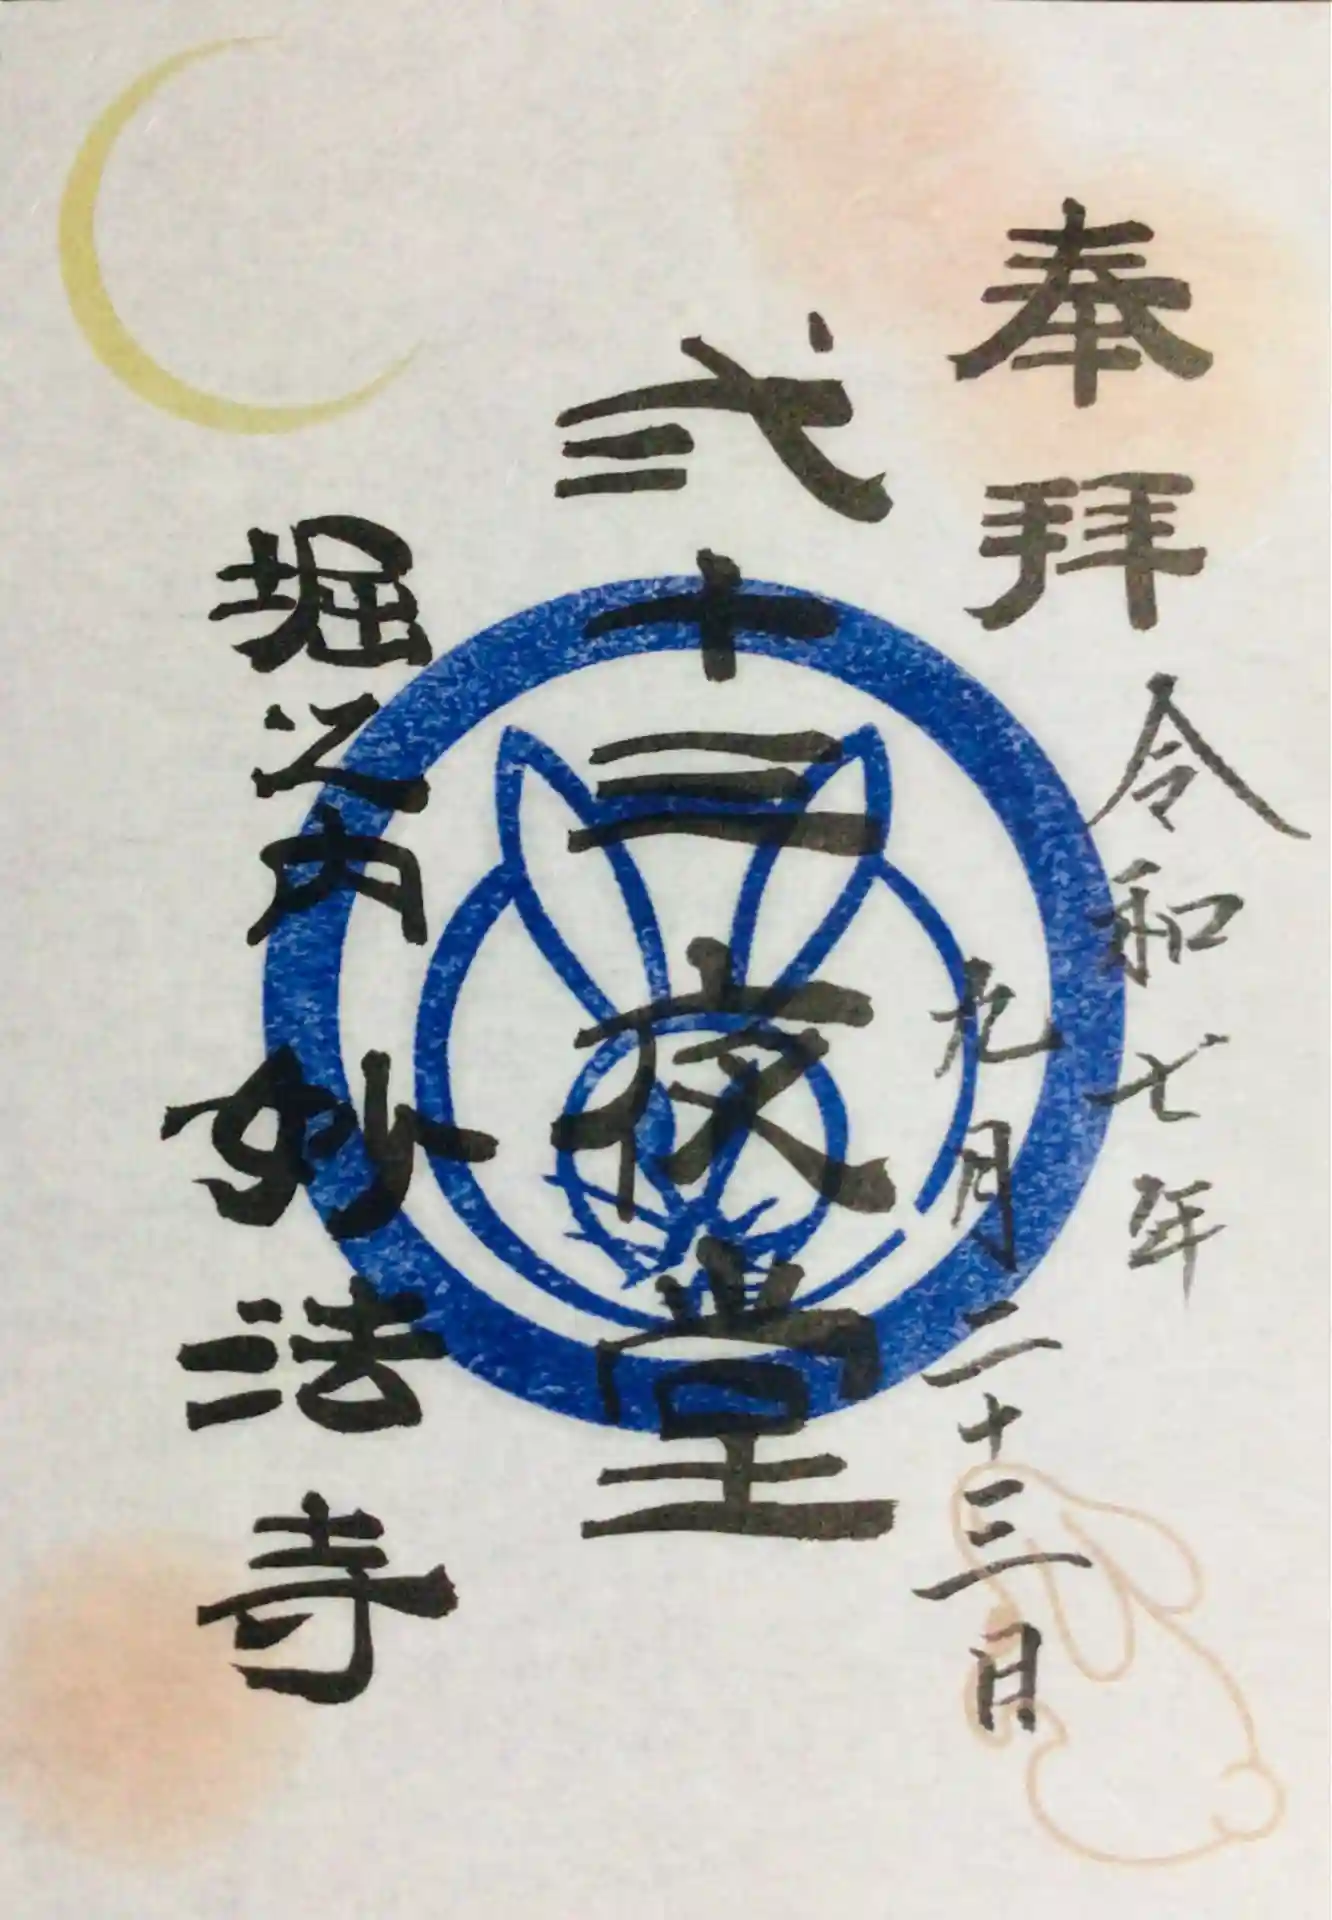 奉拝
令和七年
九月二十三日
弐十三夜堂
堀之内
妙法寺